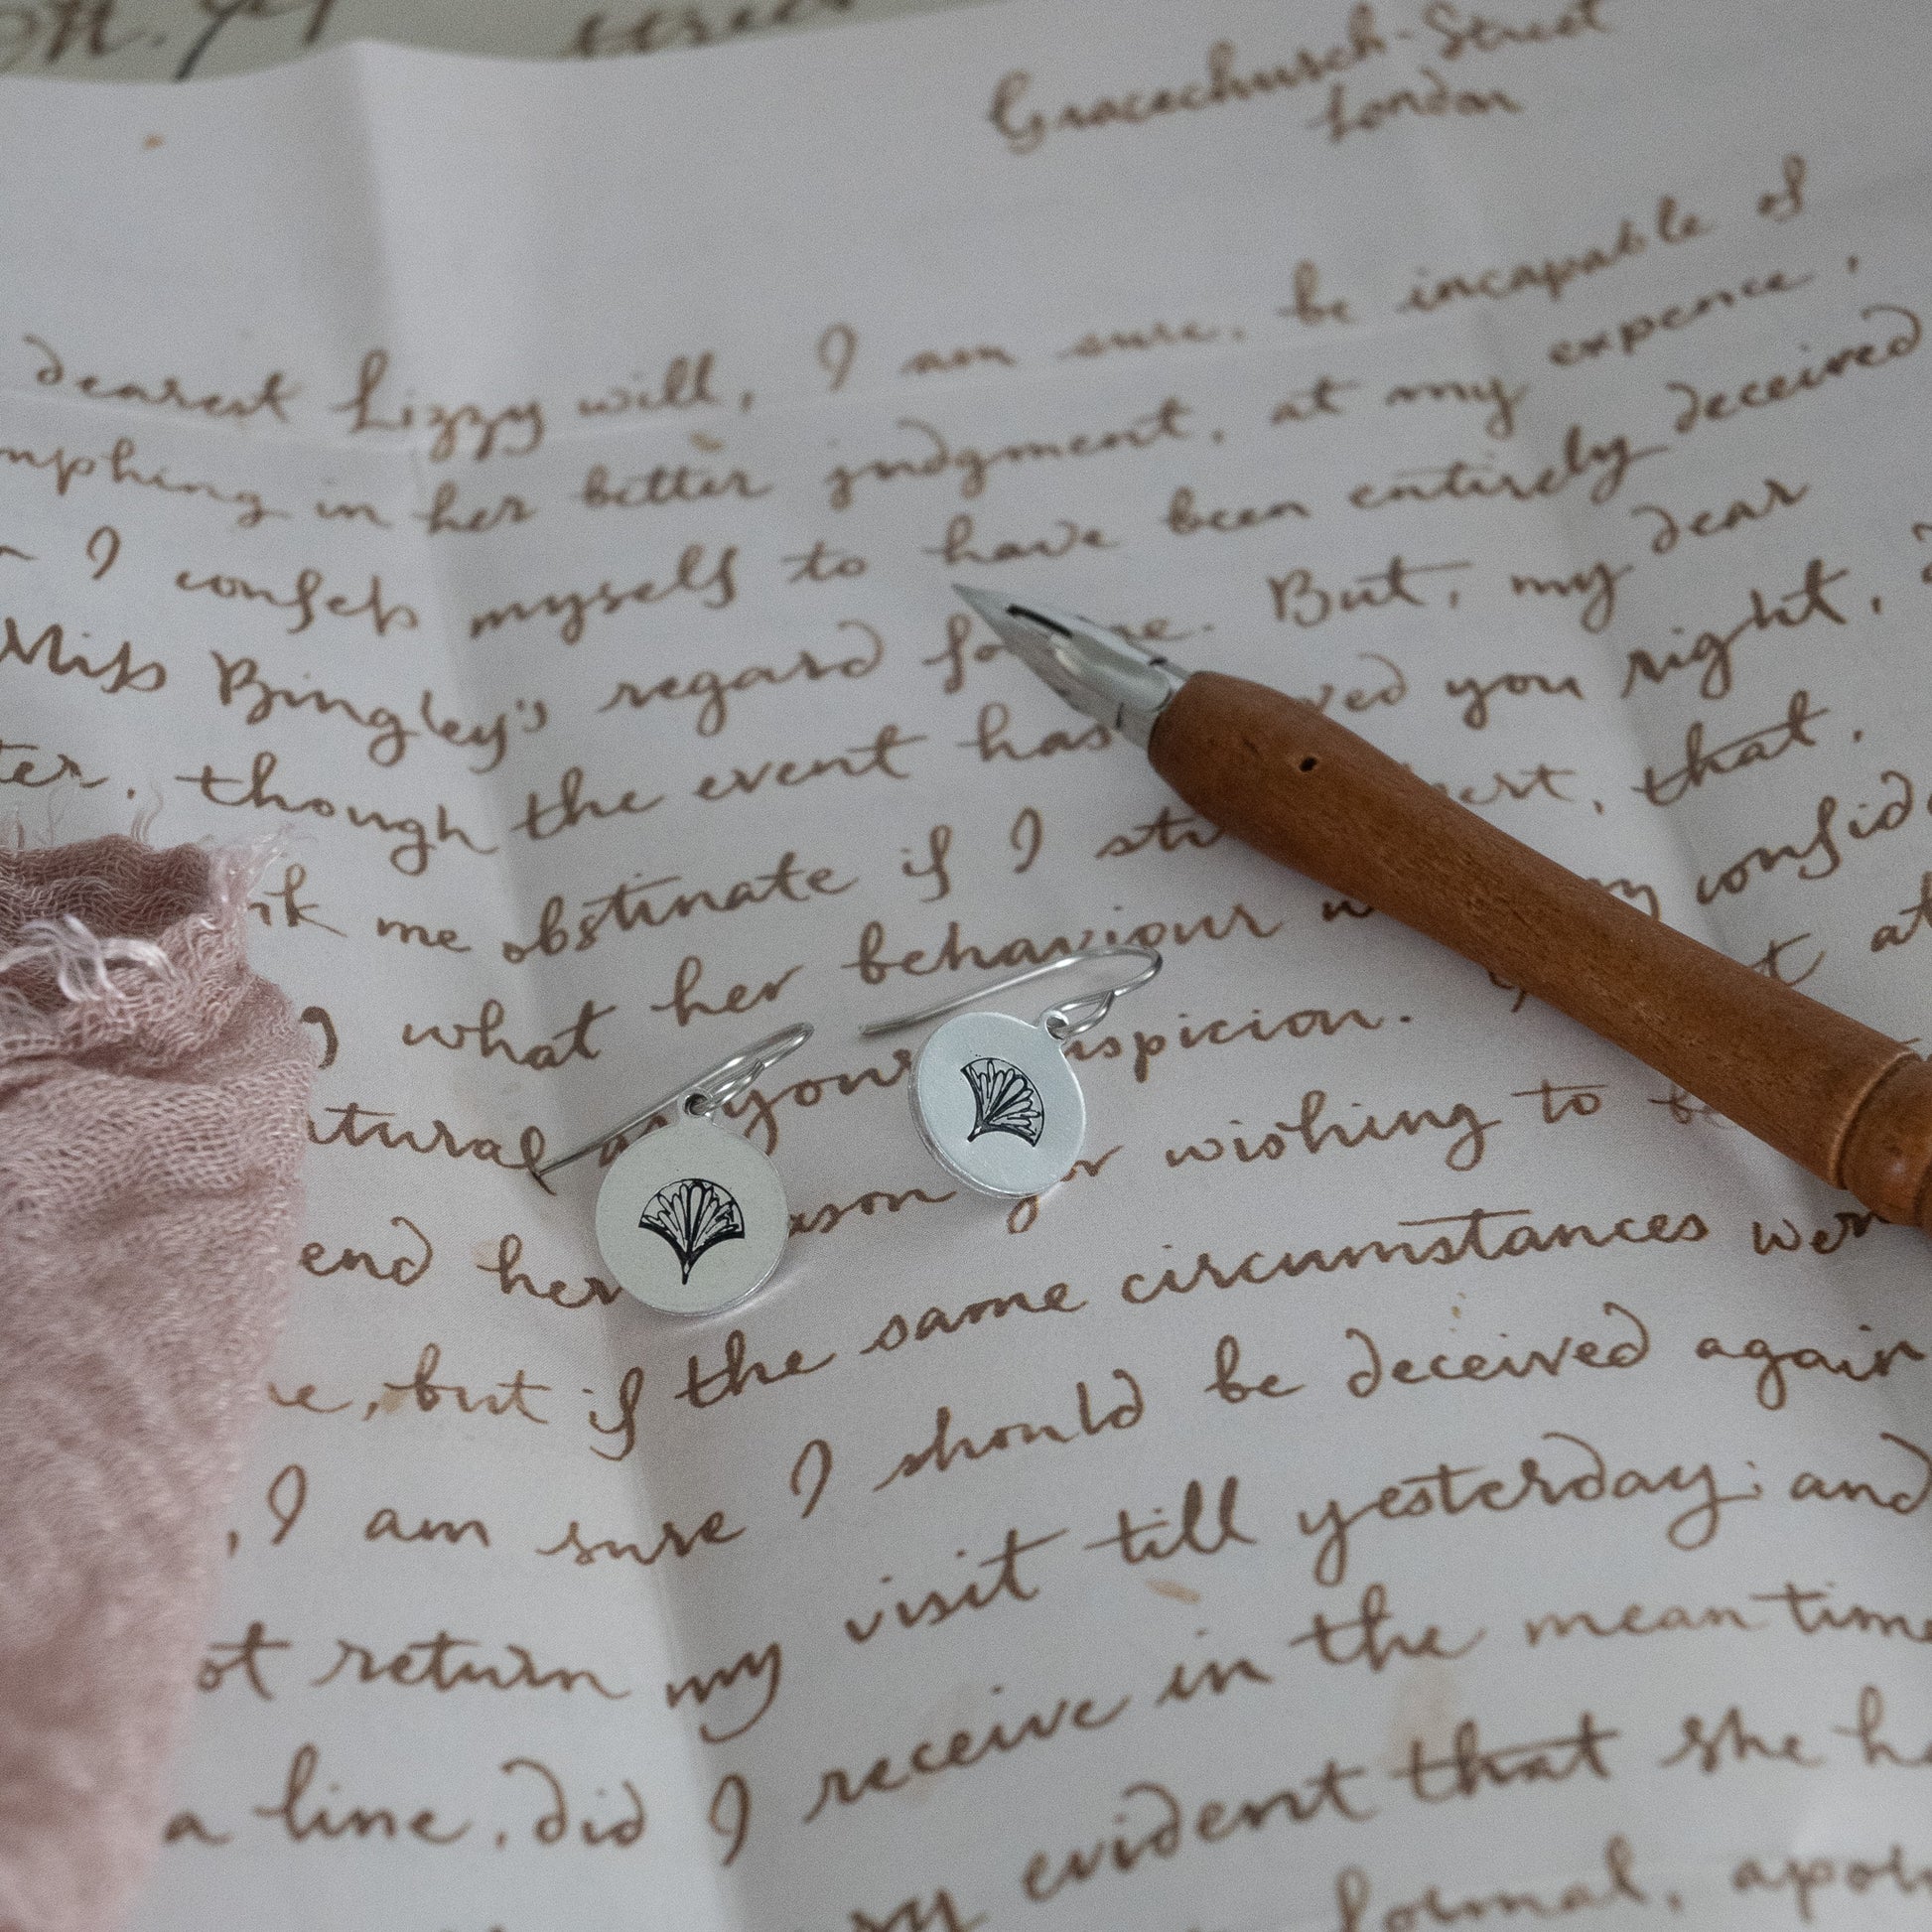 Gracechurch-Street
London
dearest Lizzy will, I am sure. be incapable of
mphing in her better judgment, at my expence,
I confess myself to have been entirely deceived
Miss Bingley's regard fo me. But, my dear
ter, though the event has ved you right, I
nk me obstinate if I sti ert, that,
what her behaviour w my confid
atural as your uspicion. t at
end her ason for wishing to be
e, but if the same circumstances wer
, I am sure I should be deceived again
ot return my visit till yesterday; and
a line, did I receive in the mean time
ry evident that she ha
formal, apolo